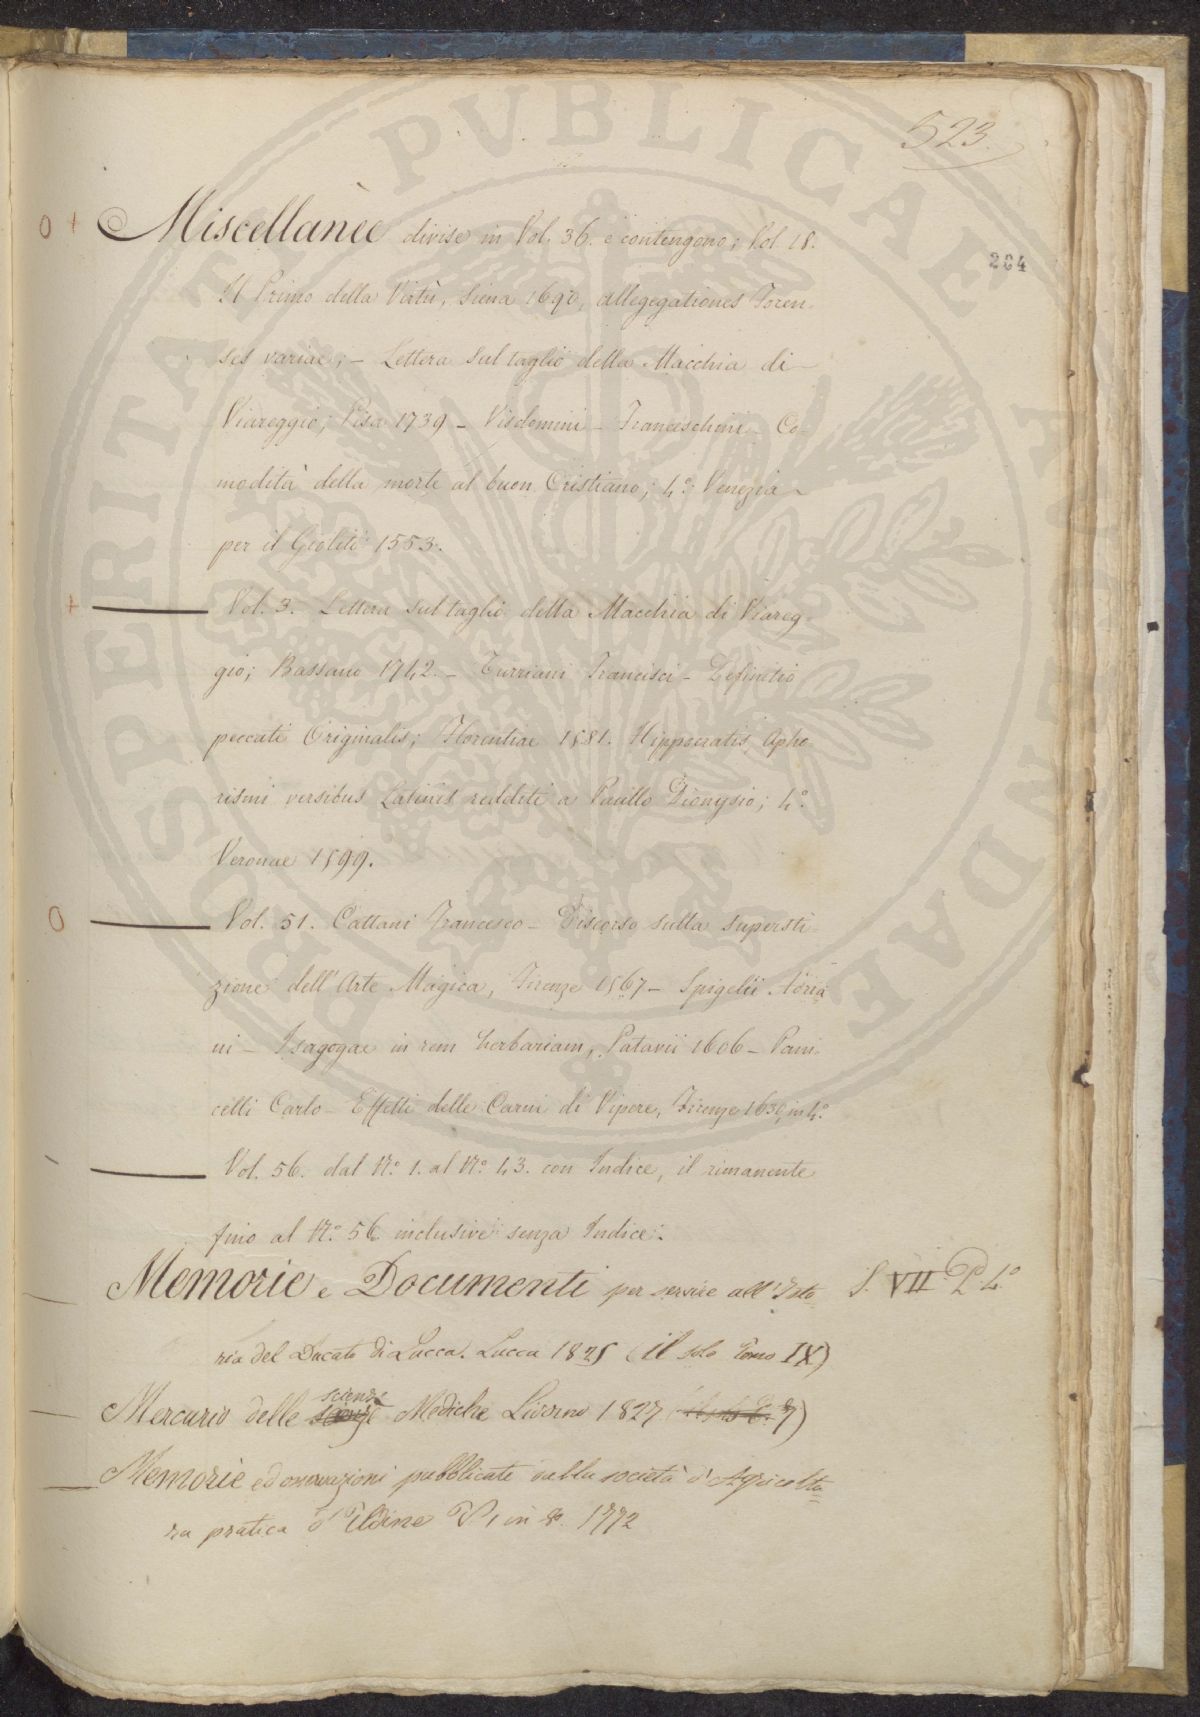 523.
204
O + Miscellanee divise in Vol. 36. e contengono; Vol. 18.
Il Primo della Virtù, Siena 1690, allegegationes Foren-
ses variae; - Lettera sul taglio della Macchia di
Viareggio; Pisa 1739 - Visdomini - Franceschini - Co-
modità della morte al buon Cristiano; 4.° Venezia
per il Gioliti 1553.
+ Vol. 3. Lettera sul taglio della Macchia di Viareg-
gio; Bassano 1742. - Turriani Francisci - Definitio
peccati Originalis; Florentiae 1581. Hippocratis Apho-
rismi versibus Latinis redditi a Paullo Dionysio; 4.°
Veronae 1599.
O Vol. 51. Cattani Francesco - Discorso sulla supersti-
zione dell'Arte Magica, Firenze 1567 - Spigelii Adria-
ni - Isagogae in rem herbariam, Patavii 1606 - Pani-
celli Carlo - Effetti delle Carni di Vipere, Firenze 1630, in 4.°
Vol. 56. dal N.° 1. al N.° 43. con Indice, il rimanente
fino al N.° 56 inclusive senza Indice.
Memorie e Documenti per servire all'Isto= S. VII P. 4.°
ria del Ducato di Lucca. Lucca 1825 (il solo Tomo IX)
scienze
Mercurio delle Mediche Livorno 1827 7)
Memorie ed osservazioni pubblicate dalla società d'Agricoltu=
ra pratica d'Udine V. 1 in 8.° 1772
PROSPERITATI PVBLICAE AVGENDAE